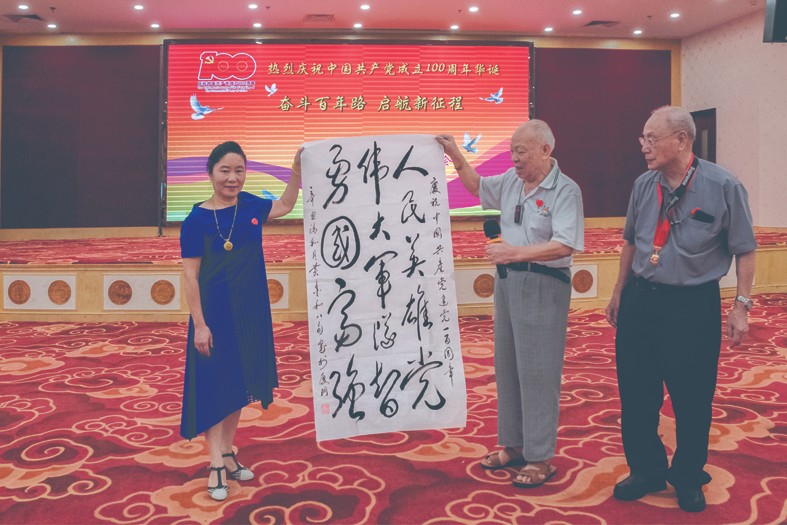 100
热烈庆祝中国共产党成立100周年华诞
奋斗百年路 启航新征程
慶祝中国共产党建党一百周年
人民英雄党
偉大軍隊智
勇國富強